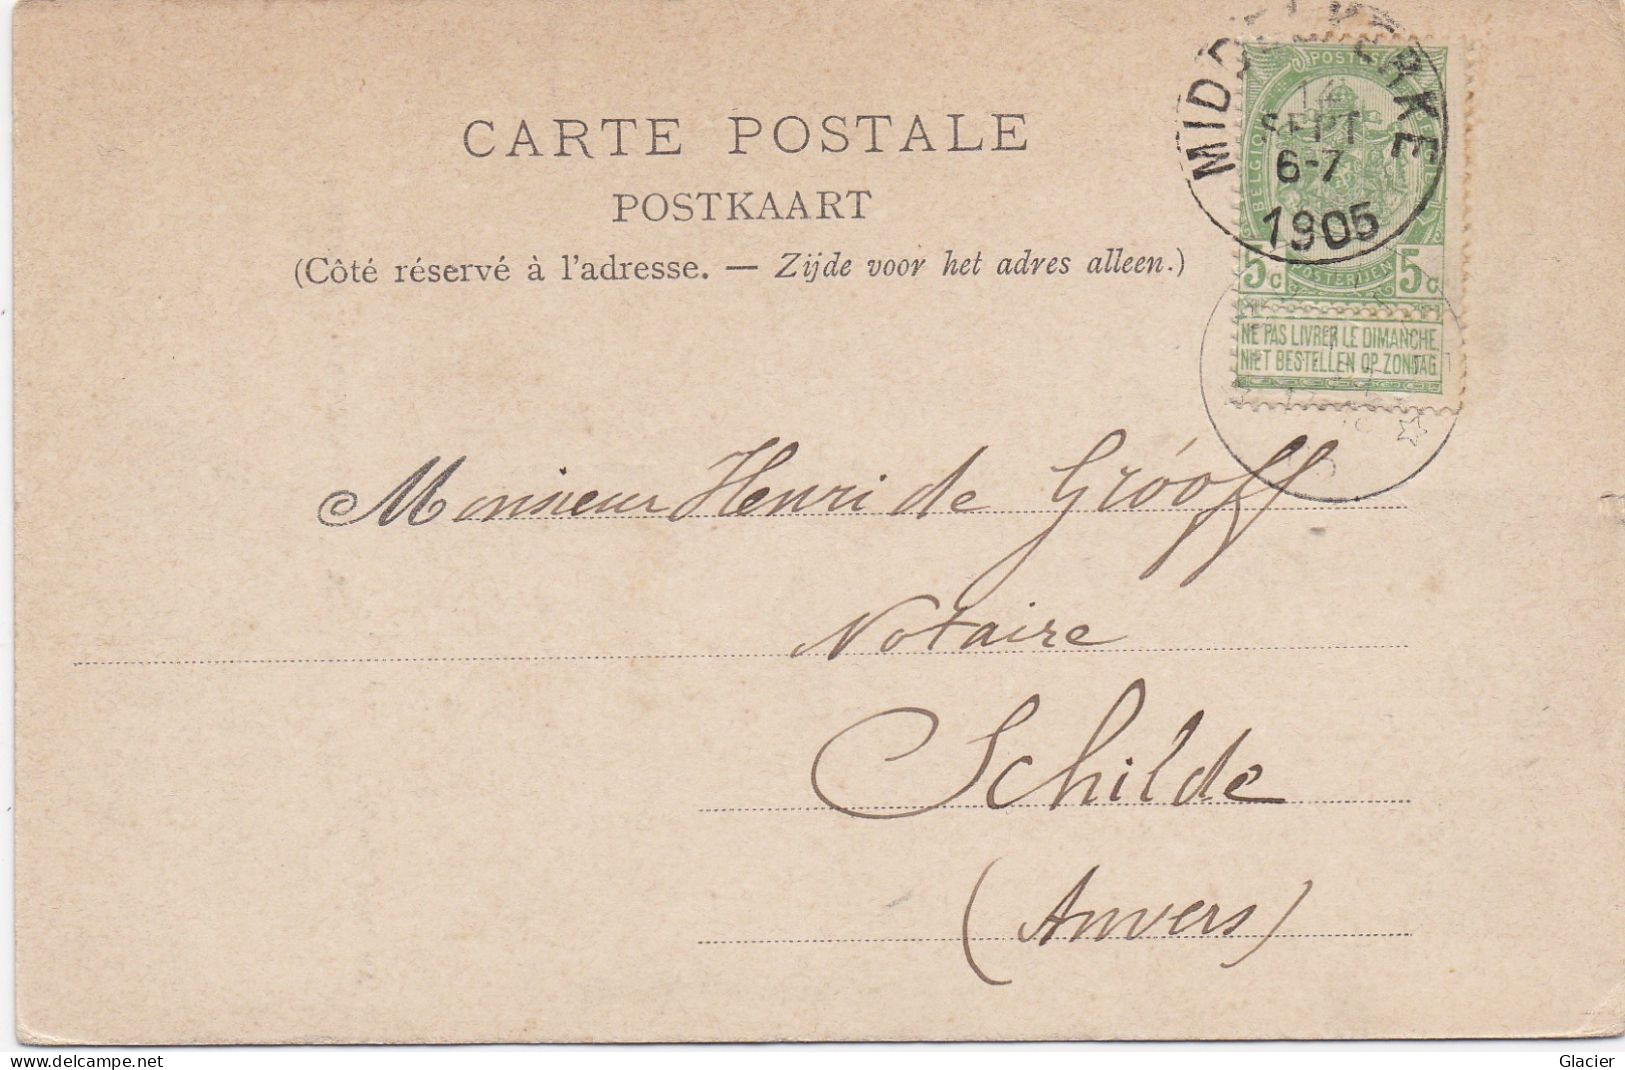 CARTE POSTALE
POSTKAART
(Côté réservé à l'adresse. — Zijde voor het adres alleen.)
MIDDELKERKE
SEPT
6-7
1905
POSTES
BELGIQUE
5c POSTERIJEN 5c
NE PAS LIVRER LE DIMANCHE
NIET BESTELLEN OP ZONDAG
Monsieur Henri de Gróoff
Notaire
Schilde
(Anvers)
www.delcampe.net
Glacier